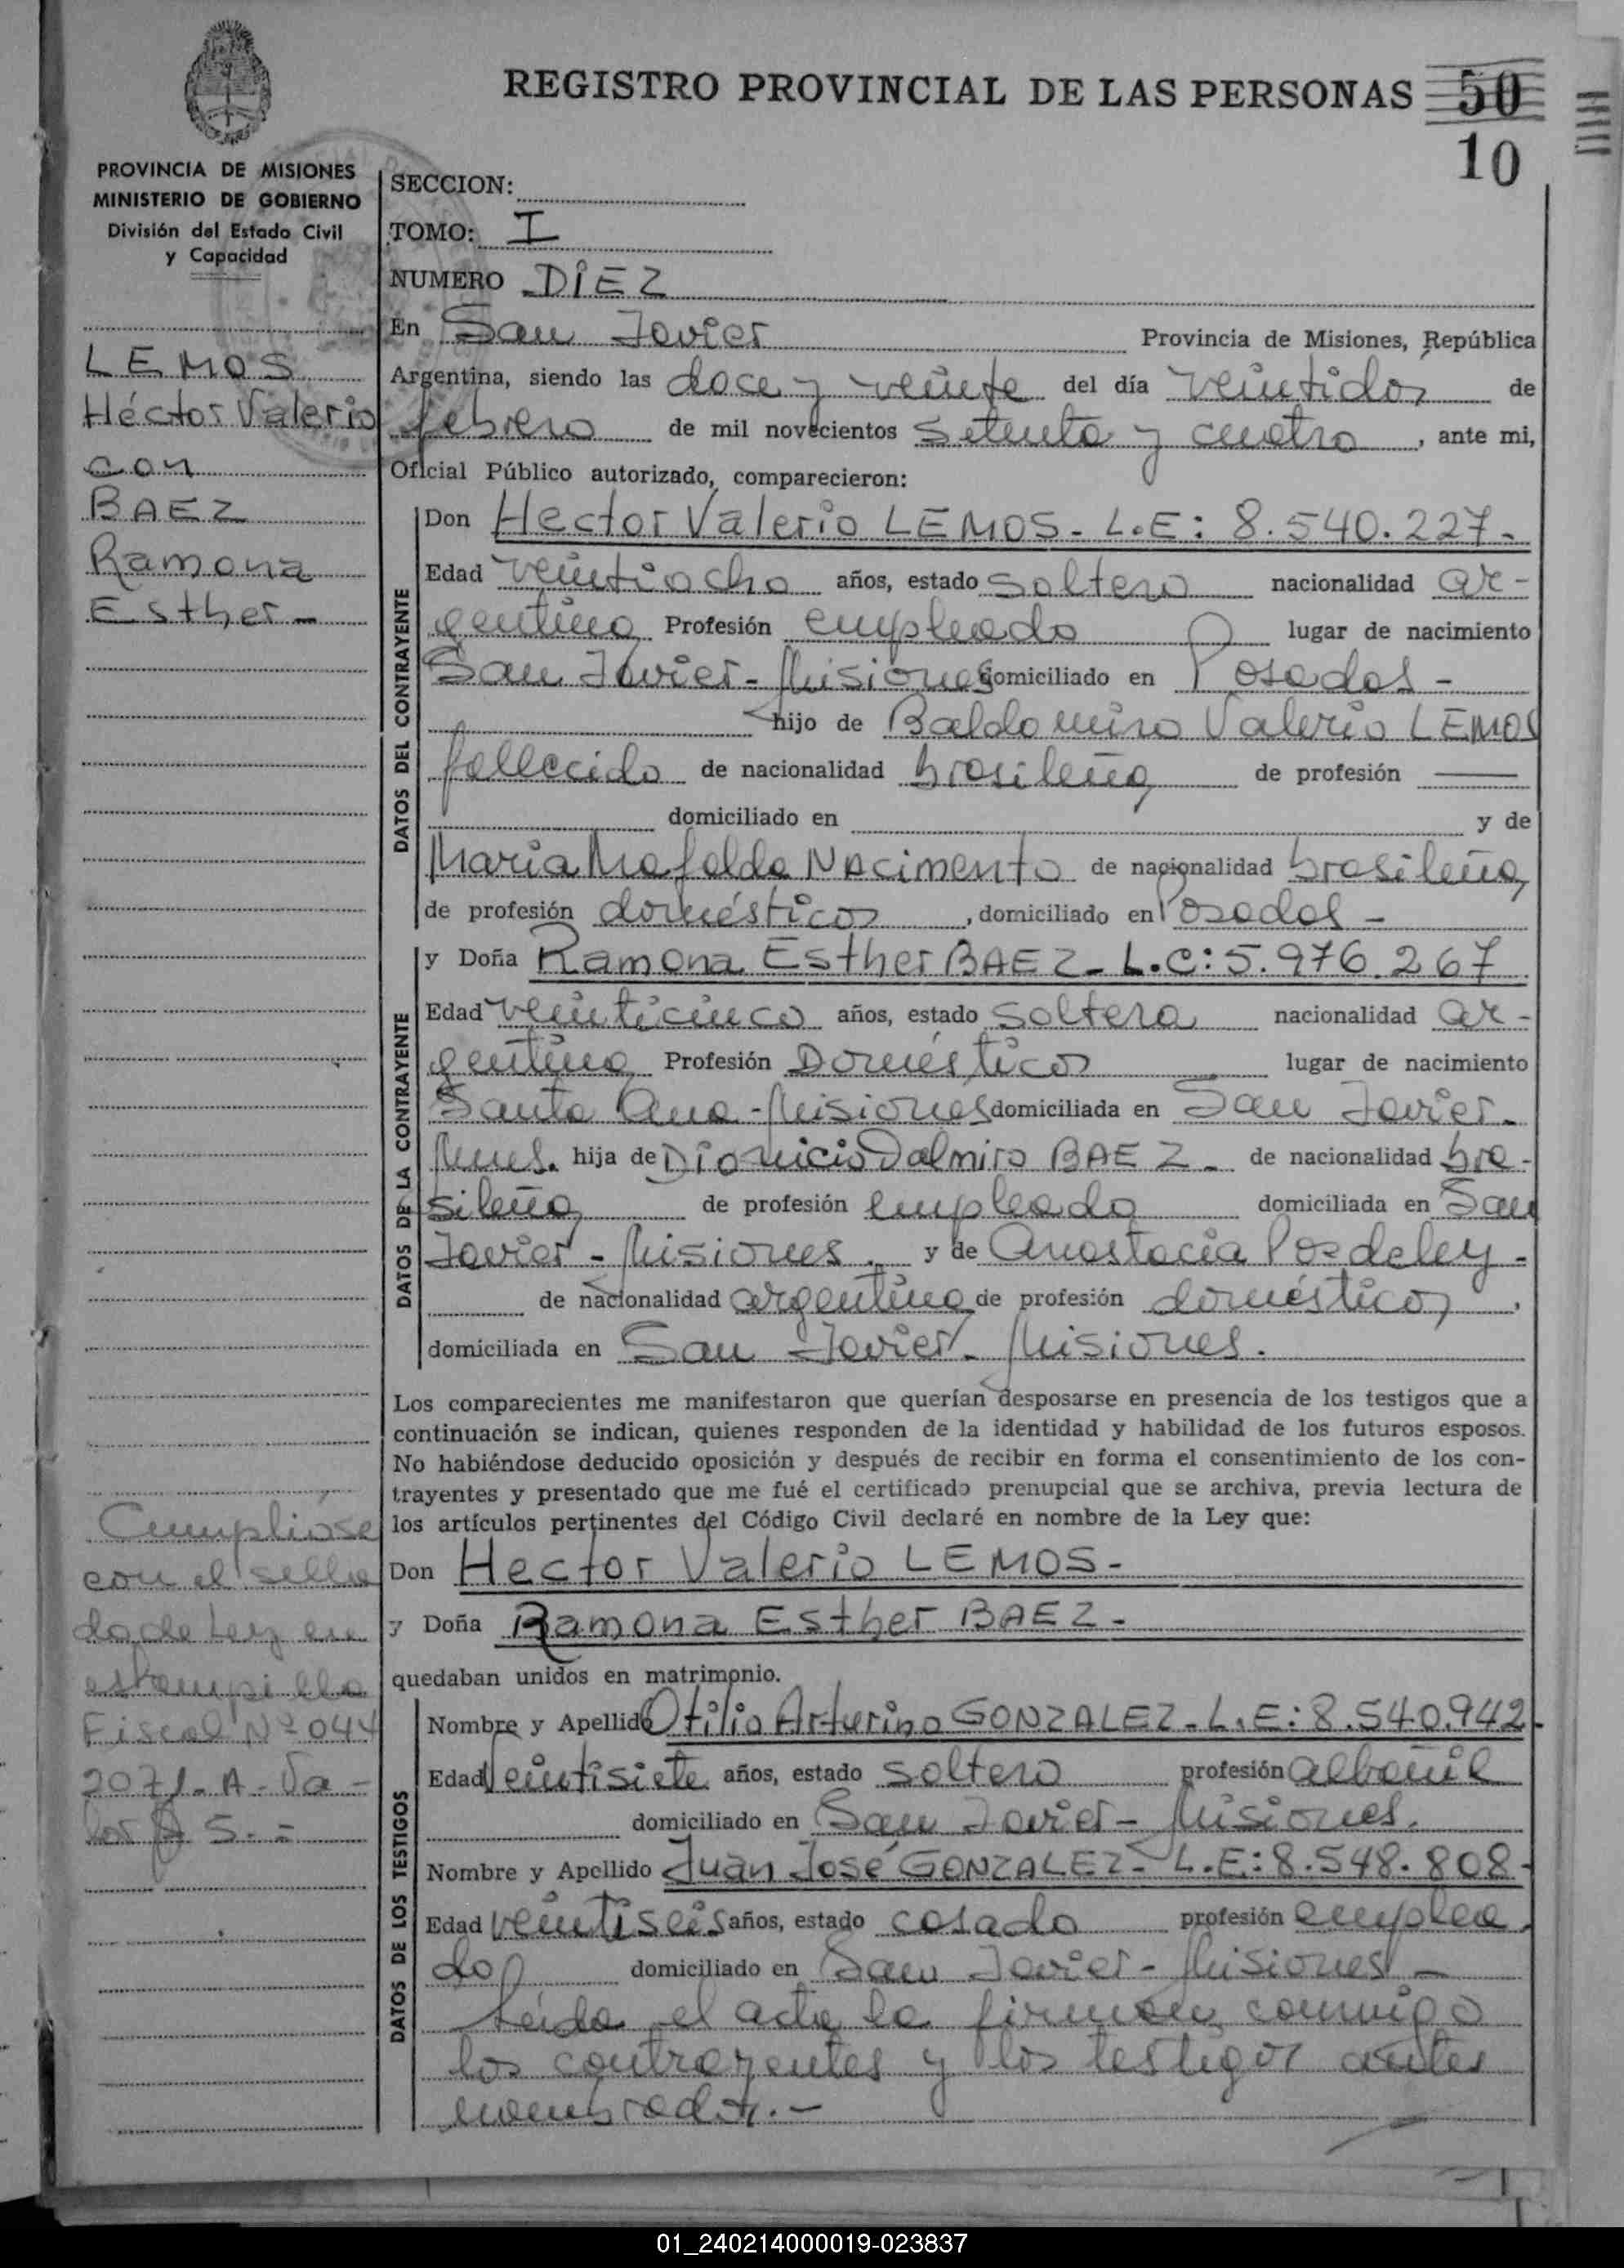 REGISTRO PROVINCIAL DE LAS PERSONAS 50
10
PROVINCIA DE MISIONES
MINISTERIO DE GOBIERNO
División del Estado Civil
y Capacidad
LEMOS
Héctor Valerio
con
BAEZ
Ramona
Esther -
Cumplióse
con el sella
do de Ley en
estampilla
Fiscal Nº 044
2071-A-Va-
lor $ 5.-
SECCION:
TOMO: I
NUMERO DIEZ
En San Javier Provincia de Misiones, República
Argentina, siendo las doce y veinte del día veintidós de
febrero de mil novecientos setenta y cuatro, ante mi,
Oficial Público autorizado, comparecieron:
DATOS DEL CONTRAYENTE
Don Hector Valerio LEMOS - L.E: 8.540.227-
Edad veintiocho años, estado soltero nacionalidad ar-
gentina Profesión empleado lugar de nacimiento
San Javier - Misiones domiciliado en Posadas -
hijo de Baldomiro Valerio LEMOS
fallecido de nacionalidad brasileña de profesión ——
domiciliado en y de
Maria Mafalda Nacimento de nacionalidad brasileña,
de profesión domésticos, domiciliado en Posadas -
DATOS DE LA CONTRAYENTE
y Doña Ramona Esther BAEZ - L.C: 5.976.267
Edad veinticinco años, estado soltera nacionalidad ar-
gentina Profesión Domésticos lugar de nacimiento
Santa Ana - Misiones domiciliada en San Javier -
Mnes. hija de Dionicio Dalmiro BAEZ - de nacionalidad bra-
sileña de profesión empleado domiciliada en San
Javier - Misiones. y de Anastacia Posdeley -
de nacionalidad argentina de profesión domésticos,
domiciliada en San Javier - Misiones.
Los comparecientes me manifestaron que querían desposarse en presencia de los testigos que a
continuación se indican, quienes responden de la identidad y habilidad de los futuros esposos.
No habiéndose deducido oposición y después de recibir en forma el consentimiento de los con-
trayentes y presentado que me fué el certificado prenupcial que se archiva, previa lectura de
los artículos pertinentes del Código Civil declaré en nombre de la Ley que:
Don Hector Valerio LEMOS -
y Doña Ramona Esther BAEZ -
quedaban unidos en matrimonio.
DATOS DE LOS TESTIGOS
Nombre y Apellido Otilio Arturino GONZALEZ - L.E: 8.540.942-
Edad Veintisiete años, estado soltero profesión albañil
domiciliado en San Javier - Misiones.
Nombre y Apellido Juan José GONZALEZ - L.E: 8.548.808-
Edad veintiseis años, estado casado profesión emplea
do domiciliado en San Javier - Misiones -
Leída el acta la firman conmigo
los contrayentes y los testigos antes
nombrados.-
01_240214000019-023837